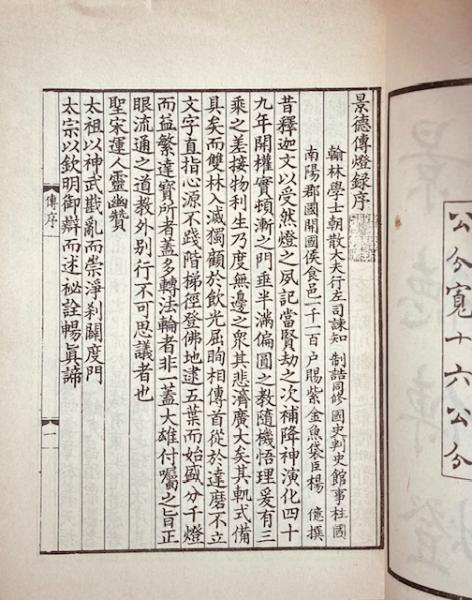 景德傳燈錄序
翰林學士朝散大夫行左司諫知制誥同修國史判史館事柱國
南陽郡開國侯食邑一千一百户賜紫金魚袋臣楊億撰
昔釋迦文以受然燈之夙記當賢劫之次補降神演化四十
九年開權實頓漸之門垂半滿偏圓之教隨機悟理爰有三
乘之差接物利生乃度無邊之衆其悲濟廣大矣其軌式備
具矣而雙林入滅獨顧於飲光屈眴相傳首從於達磨不立
文字直指心源不踐階梯徑登佛地逮五葉而始盛分千燈
而益繁達寶所者蓋多轉法輪者非一蓋大雄付囑之旨正
眼流通之道教外別行不可思議者也
聖宋運人靈幽贊
太祖以神武戡亂而崇淨刹闢度門
太宗以欽明御辯而述祕詮暢眞諦
傳序
一
公分寬十六公分